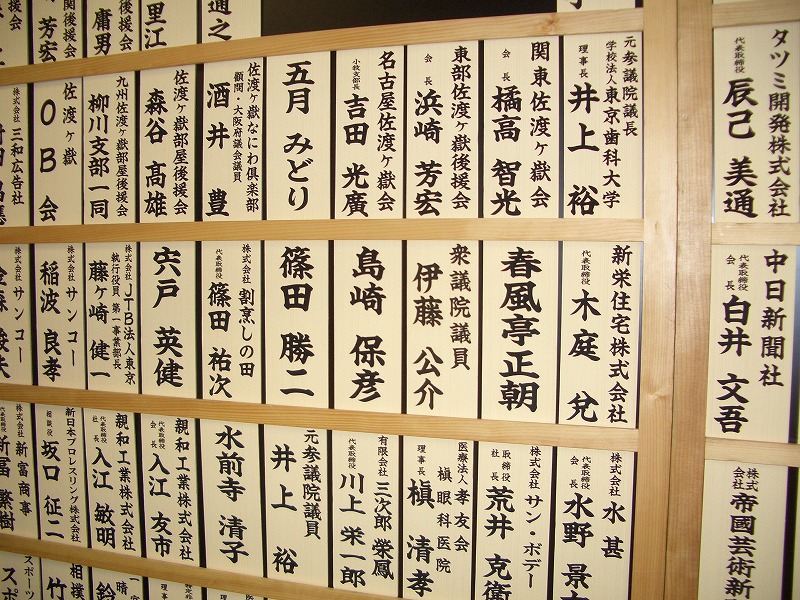 タツミ開発株式会社
代表取締役
辰己 美通
元参議院議長
学校法人東京歯科大学
理事長
井上 裕
関東佐渡ヶ嶽会
会長
橘高 智光
東部佐渡ヶ嶽後援会
会長
浜崎 芳宏
名古屋佐渡ヶ嶽会
小牧支部長
吉田 光廣
五月 みどり
佐渡ヶ嶽なにわ倶楽部
顧問・大阪府議会議員
酒井 豊
佐渡ヶ嶽部屋後援会
森谷 髙雄
九州佐渡ヶ嶽部屋後援会
柳川支部一同
佐渡ヶ嶽
OB会
株式会社 三和広告社
中日新聞社
代表取締役
会長
白井 文吾
新栄住宅株式会社
代表取締役
木庭 兌
春風亭正朝
衆議院議員
伊藤 公介
島崎 保彦
篠田 勝二
株式会社 割烹しの田
代表取締役
篠田 祐次
宍戸 英健
株式会社JTB法人東京
執行役員 第一事業部長
藤ヶ崎 健一
株式会社 サンコー
稲波 良孝
株式会社 サンコー
株式会社 帝國芸術新
株式会社 水甚
代表取締役
会長
水野 景
株式会社 サン・ボデー
取締役
社長
荒井 克衛
医療法人孝友会
槇眼科医院
理事長
槇 清孝
有限会社 三次郎 榮鳳
代表取締役
川上 栄一郎
元参議院議員
井上 裕
水前寺 清子
親和工業株式会社
代表取締役
会長
入江 友市
親和工業株式会社
代表取締役
社長
入江 敏明
新日本プロレスリング株式会社
相談役
坂口 征二
株式会社 新富商事
代表取締役
新富 繁樹
里江
後援会
庸男
関後援会
芳宏
通之
相撲
竹
スポーツ
スポ